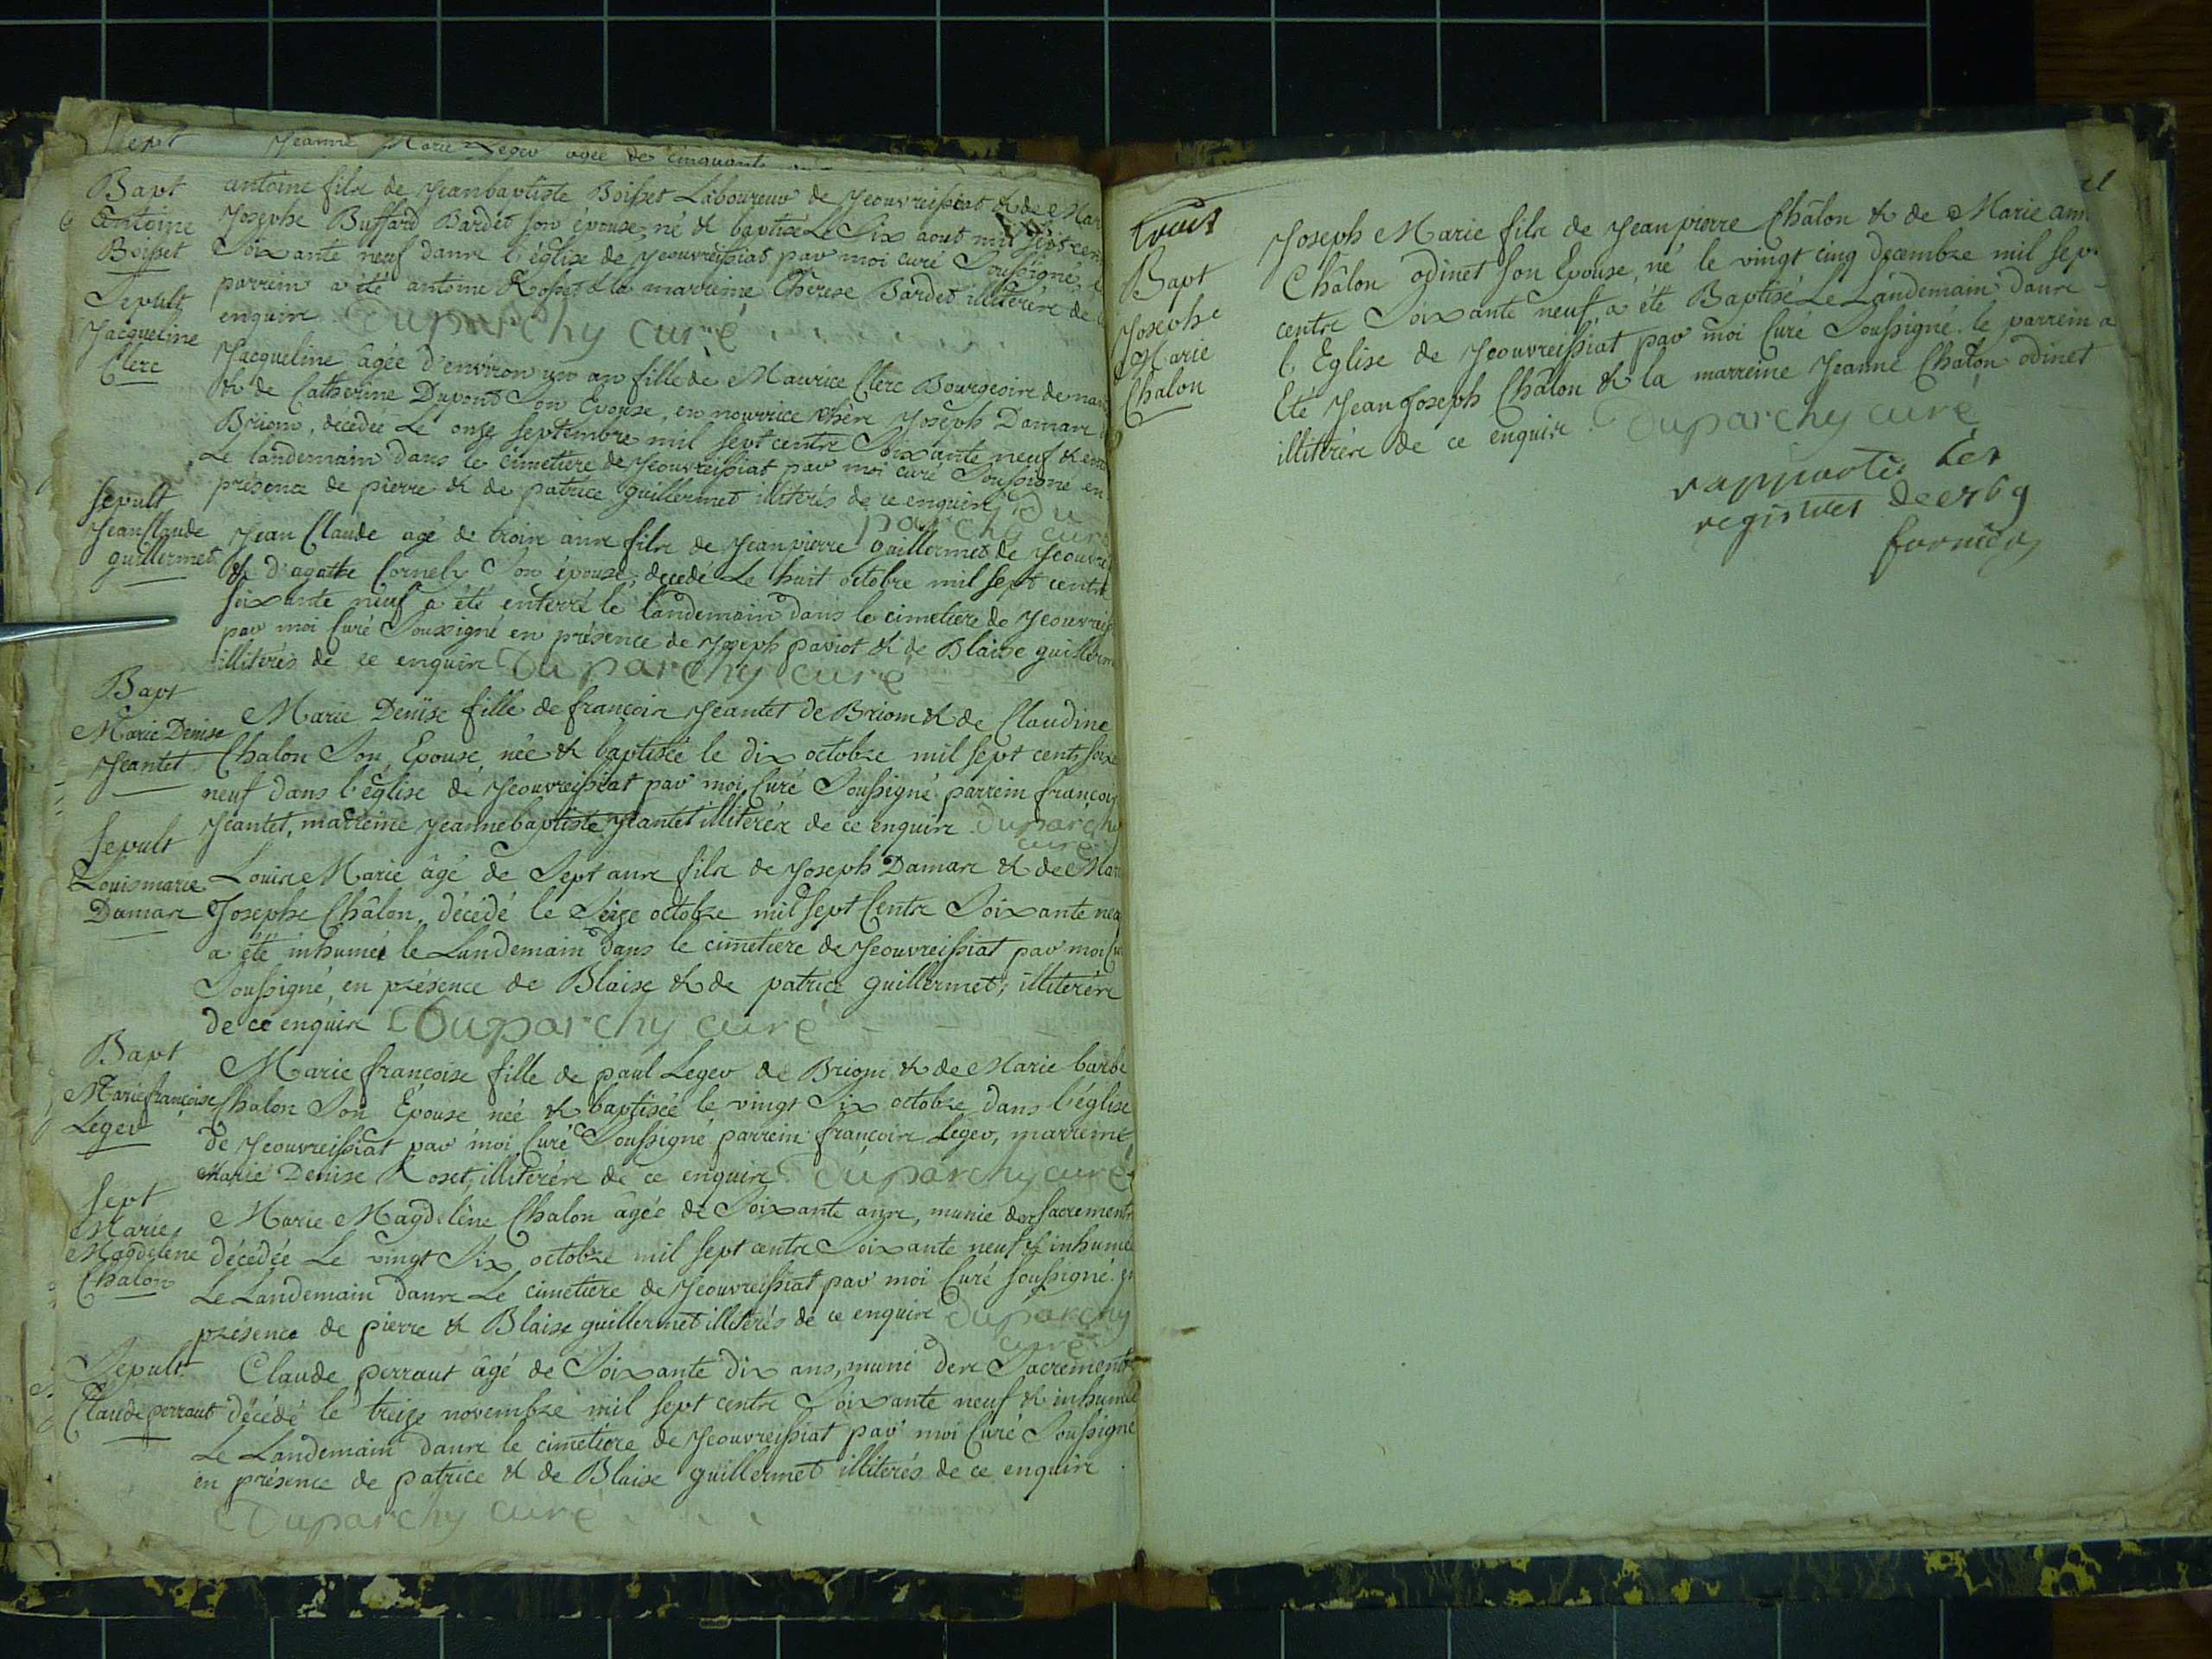 Sept Jeanne Marie Leger agée de cinquante
Bapt
Antoine
Boisset
antoine fils de Jeanbaptiste Boisset Laboureur de Jeouvreissiat & de Mar
Josephe Buffard Bardet son épouse, né & baptisé Le Six aout mil sept cen
Soixante neuf dans l'église de Jeouvreissiat par moi curé Soussigné, l
parrein a été antoine Rosset & la marreine Therese Bardet illiterés de
enquis Duparchy curé
Sepult
Jacqueline
Clerc
Jacqueline âgée d'environ un an fille de Maurice Clerc Bourgeois de
& de Catherine Dupont Son Epouse, en nourrice chés Joseph Damas
Brions, décédée Le onze septembre mil sept cents Soixante neuf &
Le landemain dans le cimetiere de Jeouvreissiat par moi curé Soussigné en
présence de pierre & de patrice guillermet illiterés de ce enquis Du
parchy curé
Sepult
Jean Claude
guillermet
Jean Claude agé de trois ans fils de Jean pierre guillermet de Jeouvre
& d'agathe Cornely Son épouse, decedé Le huit octobre mil sept cents
soixante neuf a été enterré le landemain dans le cimetiere de Jeouvreis
par moi Curé Soussigné en présence de Joseph paviot & de Blaise guillerm
illiterés de ce enquis Duparchy curé
Bapt
Marie Denise
Jeantet
Marie Denise fille de francois Jeantet de Brion & de Claudine
Chalon Son Epouse, née & baptisée le dix octobre mil sept cents soix
neuf dans l'église de Jeouvreissiat par moi Curé Soussigné parrein francois
Jeantet, marreine Jeannebaptiste Jeantet illiterés de ce enquis Duparchy
curé
Sepult
Louis marie
Damas
Louis Marie âgé de Sept ans fils de Joseph Damas & de Mar
Josephe Châlon, décédé le Seize octobre mil sept Cents Soixante neu
a été inhumé le Landemain dans le cimetiere de Jeouvreissiat par moi Cu
Soussigné, en présence de Blaise & de patrice guillermet, illiterés
de ce enquis Duparchy curé
Bapt
Marie françoise
Leger
Marie françoise fille de paul Leger de Brion & de Marie barbe
Chalon Son Epouse née & baptisée le vingt Six octobre dans l'église
de Jeouvreissiat par moi Curé Soussigné parrein francois Leger, marreine
Marie Denise Roset, illiterés de ce enquis Duparchy curé
Sept
Marie
Magdelene
Chalon
Marie Magdelène Chalon âgée de Soixante ans, munie des sacrements
décédée Le vingt Six octobre mil sept cents Soixante neuf & inhumée
Le Landemain dans Le cimetiere de Jeouvreissiat par moi Curé soussigné en
présence de pierre & Blaise guillermet illiterés de ce enquis Duparchy
curé
Sepult
Claude perraut
Claude perraut âgé de Soixante dix ans, muni des Sacrements
décédé le treize novembre mil sept cents Soixante neuf & inhumé
Le Landemain dans le cimetiere de Jeouvreissiat par moi Curé Soussigné
en présence de patrice & de Blaise guillermet illiterés de ce enquis
Duparchy curé
Bapt
Josephe
Marie
Chalon
Joseph Marie fils de Jean pierre Châlon & de Marie ann
Châlon odinet son Epouse, né le vingt cinq decembre mil sept
cents Soixante neuf a été Baptisé Le Landemain dans
l'Eglise de Jeouvreissiat par moi Curé Soussigné. le parrein a
Eté Jean Joseph Châlon & la marreine Jeanne Chalon odinet
illiterés de ce enquis Duparchy curé
rapportés les
registres de 1769